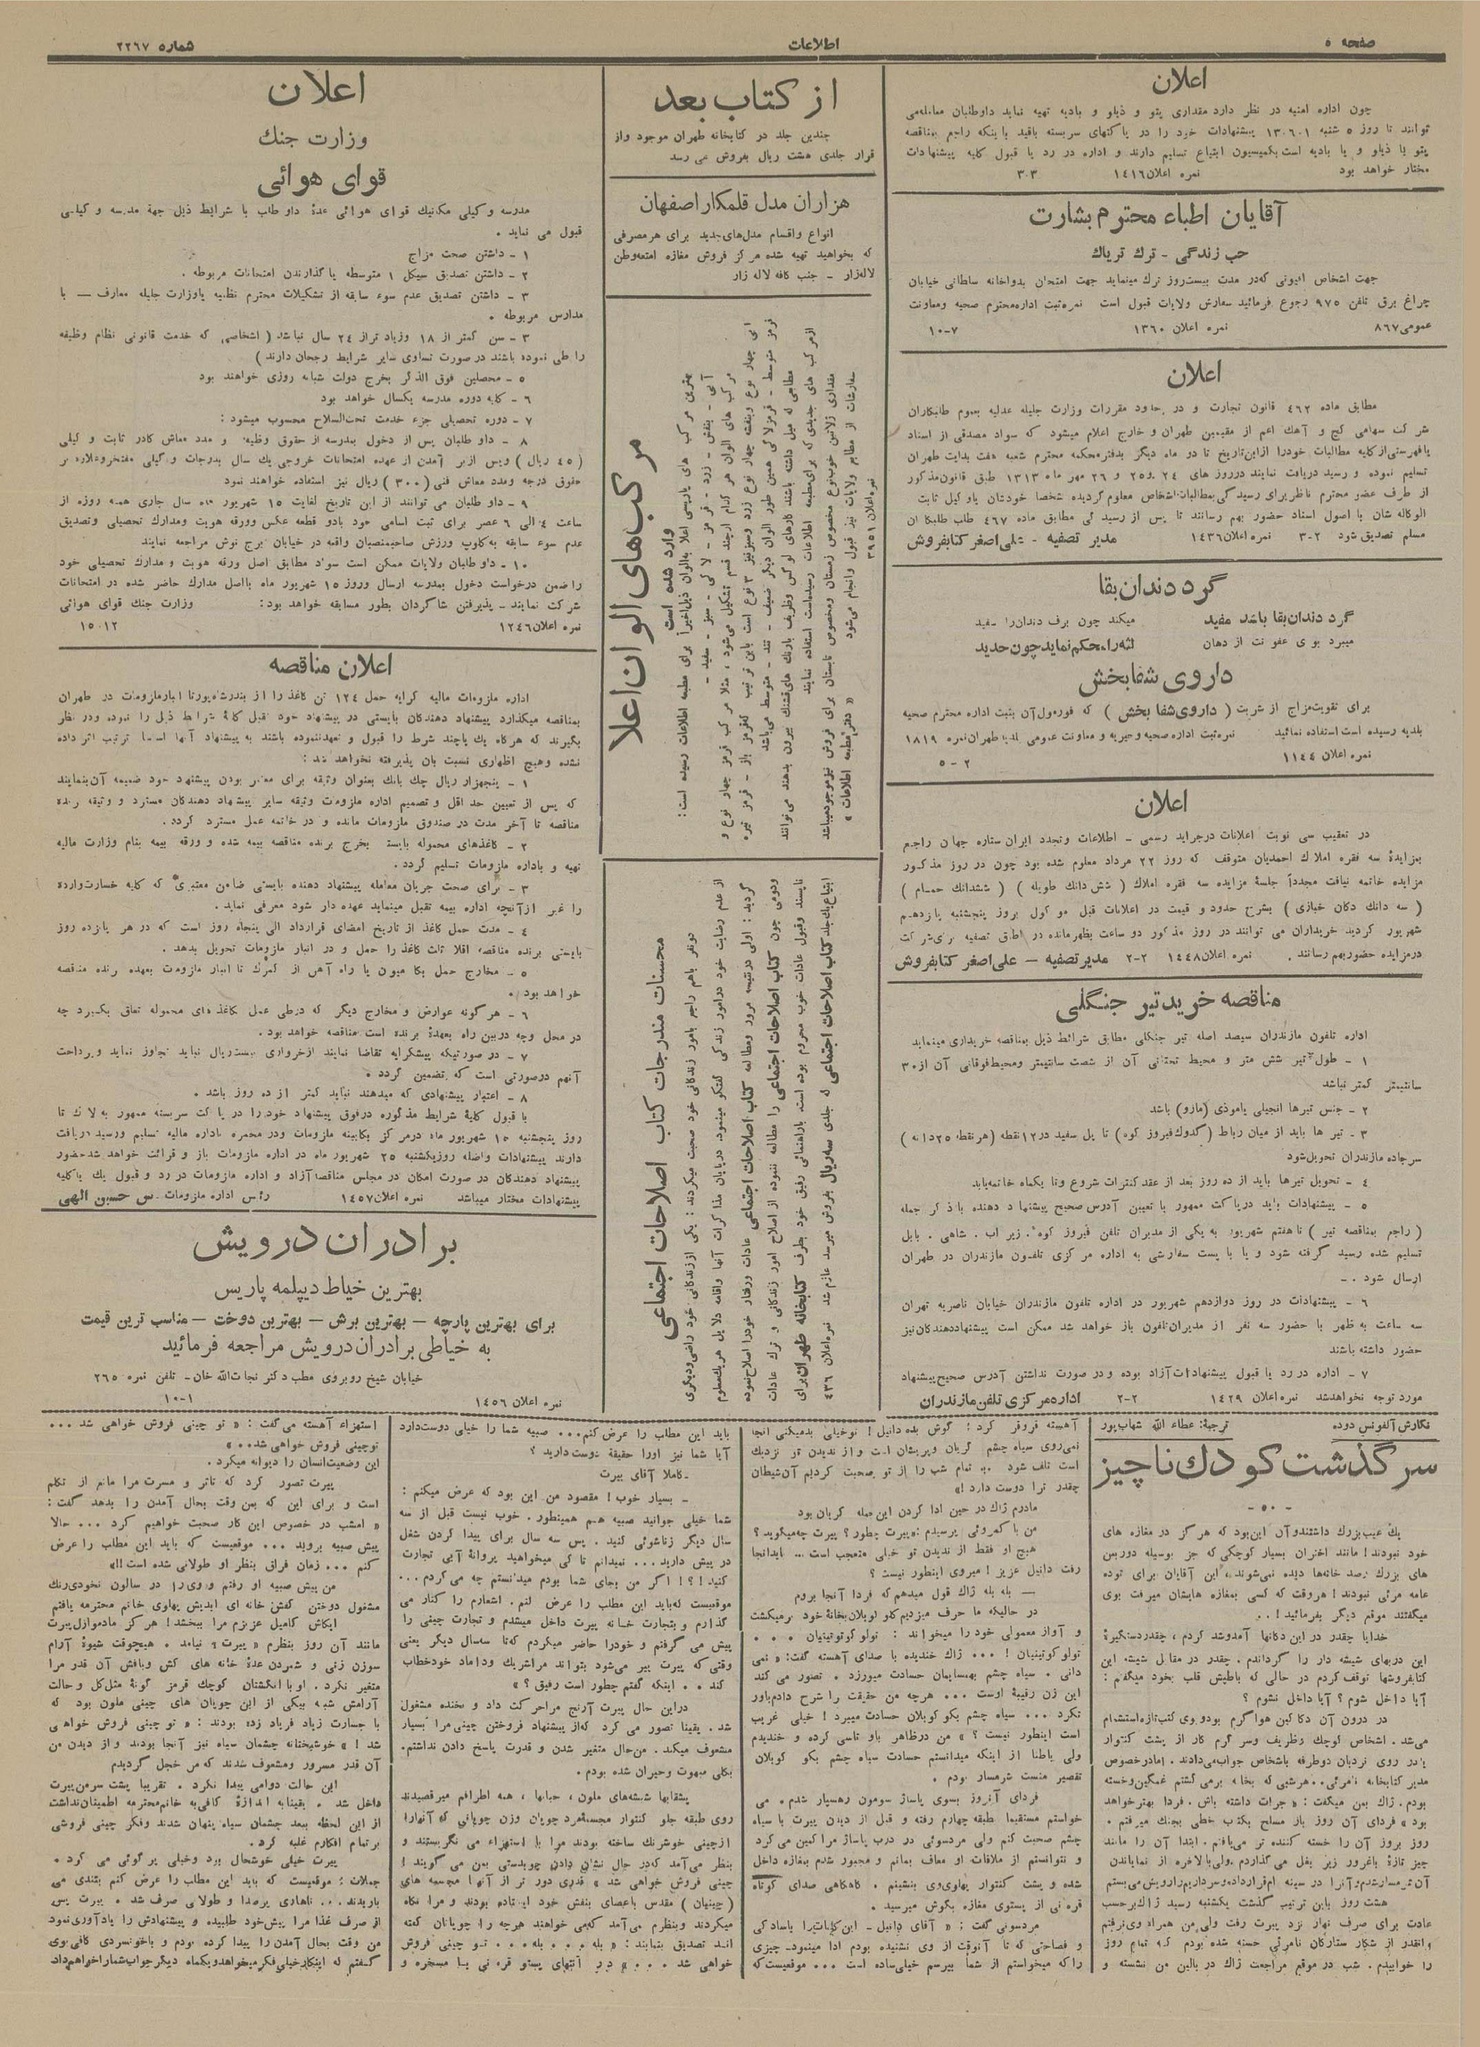 صفحه ۵
اطلاعات
شماره ۲۲۶۷
اعلان
چون اداره امنیه در نظر دارد مقداری پتو و ذیلو و بادیه تهیه نماید داوطلبان معامله می
توانند تا روز ۵ شنبه ۱۳۰۶۰۱ پیشنهادات خود را در پاکتهای سربسته باقید باینکه راجع بمناقصه
پتو یا ذیلو و یا بادیه است بکمیسیون ابتیاع تسلیم دارند و اداره در رد یا قبول کلیه پیشنهادات
مختار خواهد بود نمره اعلان ۱۴۱۶ ۳-۳
آقایان اطباء محترم بشارت
حب زندگی - ترك تریاك
جهت اشخاص افیونی که در مدت بیست روز ترك مینماید جهت امتحان بدواخانه سلطانی خیابان
چراغ برق تلفن ۹۷۵ رجوع فرمائید سفارش ولایات قبول است نمره ثبت اداره محترم صحیه ومعاونت
عمومی ۸۶۷ نمره اعلان ۱۳۶۰ ۷-۱۰
اعلان
مطابق ماده ۴۶۲ قانون تجارت و در حدود مقررات وزارت جلیله عدلیه بعموم طلبکاران
شرکت سهامی گچ و آهك اعم از مقیمین طهران و خارج اعلام میشود که سواد مصدقی از اسناد
یا فهرستی از کلیه مطالبات خود را از این تاریخ تا دو ماه دیگر بدفتر محکمه محترم شعبه هفت بدایت طهران
تسلیم نموده و رسید دریافت نمایند در روز های ۲۴ و ۲۵ و ۲۶ مهر ماه ۱۳۱۳ طبق قانون مذکور
از طرف عضو محترم ناظر برای رسیدگی بمطالبات اشخاص معلوم گردیده شخصا خودشان یا وکیل ثابت
الوکاله شان با اصول اسناد حضور بهم رسانند تا پس از رسیدگی مطابق ماده ۴۶۷ طلب طلبکاران
مسلم تصدیق شود ۲-۳ نمره اعلان ۱۴۳۶ مدیر تصفیه - علی اصغر کتابفروش
گرد دندان بقا
گرد دندان بقا باشد مفید میکند چون برف دندان را سفید
میبرد بوی عفونت از دهان لثه را محکم نماید چون حدید
داروی شفا بخش
برای تقویت مزاج از شربت ( داروی شفا بخش ) که فورمول آن بثبت اداره محترم صحیه
بلدیه رسیده است استفاده نمائید نمره ثبت اداره صحیه وخیریه و معاونت عمومی بلدیه طهران نمره ۱۸۱۹
نمره اعلان ۱۱۴۴ ۲-۵
اعلان
در تعقیب سی نوبت اعلانات در جراید رسمی - اطلاعات وتجدد ایران ستاره جهان راجع
بمزایدهٔ سه فقره املاك احمدیان متوقف که روز ۲۲ مرداد معلوم شده بود چون در روز مذکور
مزایده خاتمه نیافت مجدداً جلسهٔ مزایده سه فقره املاك ( شش دانك طویله ) ( ششدانك حمام )
( سه دانك دکان خبازی ) بشرح حدود و قیمت در اعلانات قبل موکول بروز پنجشنبه یازدهم
شهریور گردید خریداران می توانند در روز مذکور دو ساعت بظهر مانده در اطاق تصفیه برای شرکت
در مزایده حضور بهم رسانند . نمره اعلان ۱۴۴۸ ۲-۲ مدیر تصفیه - علی اصغر کتابفروش
مناقصه خرید تیر جنگلی
اداره تلفون مازندران سیصد اصله تیر جنگلی مطابق شرائط ذیل بمناقصه خریداری مینماید
۱ - طول تیر شش متر و محیط تحتانی آن از شصت سانتیمتر ومحیط فوقانی آن از ۳۰
سانتیمتر کمتر نباشد
۲ - جنس تیرها انجیلی یا موذی (مازو) باشد
۳ - تیر ها باید از میان رباط (گدوك فیروز کوه) تا پل سفید در ۱۲ نقطه (هر نقطه ۲۵ دانه)
سر جاده مازندران تحویل شود
۴ - تحویل تیرها باید از ده روز بعد از عقد کنترات شروع وتا یکماه خاتمه یابد
۵ - پیشنهادات باید در پاکت ممهور با تعیین آدرس صحیح پیشنهاد دهنده با ذکر جمله
( راجع بمناقصه تیر ) تا هفتم شهریور به یکی از مدیران تلفن فیروز کوه . زیر اب . شاهی . بابل
تسلیم شده رسید گرفته شود و یا با پست سفارشی به اداره مرکزی تلفون مازندران در طهران
ارسال شود .-
۶ - پیشنهادات در روز دوازدهم شهریور در اداره تلفون مازندران خیابان ناصریه تهران
سه ساعت به ظهر با حضور سه نفر از مدیران تلفون باز خواهد شد ممکن است پیشنهاد دهندگان نیز
حضور داشته باشند
۷ - اداره در رد یا قبول پیشنهادات آزاد بوده و در صورت نداشتن آدرس صحیح پیشنهاد
مورد توجه نخواهد شد نمره اعلان ۱۴۲۹ ۲-۲ اداره مرکزی تلفن مازندران
از کتاب بعد
چندین جلد در کتابخانه طهران موجود و از
قرار جلدی هشت ریال بفروش می رسد
هزاران مدل قلمکار اصفهان
انواع واقسام مدل های جدید برای هر مصرفی
که بخواهید تهیه شده مرکز فروش مغازه امتعه وطن
لاله زار - جنب کافه لاله زار
مرکب های الوان اعلا
وارد شده است
بهترین مرکب های پاریسی اعلا بالوان ذیل اخیراً برای مطبعه اطلاعات رسیده است :
آبی - بنفش - زرد - قرمز - لاکی - سبز - سفید -
مرکب های الوان هر کدام از چند قسم تشکیل می شود ، مثلا مرکب قرمز چهار نوع و
آبی چهار نوع وبنفشه چهار نوع زرد وسبز نیز ۳ نوع است باین ترتیب که قرمز باز - قرمز تیره
قرمز متوسط - قرمز لاکی همین طور الوان دیگر ضعیف - تند - متوسط می باشد
از مرکب های جدیدی که برای مطبعه اطلاعات رسیده است استفاده نمایند
مقداری ژلاتین خوب نوع مخصوص زمستان ومخصوص تابستان برای فروش نیز موجود میباشد
سفارشات از مطابع ولایات نیز قبول وانجام می شود « دفتر مطبعه اطلاعات »
نمره اعلان ۳۹۵۱
محسنات مندرجات کتاب اصلاحات اجتماعی
دو نفر باهم راجع بامور زندگانی خود صحبت میکردند : یکی از زندگانی خود راضی ودیگری
از عدم رضایت خود در امور زندگی گفتگو مینمود. در پایان مذاکرات آنها واقامه دلایل هر یك معلوم
گردید : اولی در نتیجه مرور ومطالعه کتاب اصلاحات اجتماعی عادات ورفتار خود را اصلاح نموده
ودومی چون کتاب اصلاحات اجتماعی را مطالعه ننموده از اصلاح امور زندگانی و ترك عادات
ناپسند وقبول عادات خوب محروم بوده است. براهنمائی رفیق خود بطرف کتابخانه طهران برای
ابتیاع یك جلد کتاب اصلاحات اجتماعی که جلدی سه ریال بفروش میرسد عازم شد نمره اعلان ۹۳۶
اعلان
وزارت جنك
قوای هوائی
مدرسه وکیلی مکانیك قوای هوائی عدهٔ داوطلب با شرایط ذیل جهة مدرسه وکیلی
قبول می نماید .
۱ - داشتن صحت مزاج
۲ - داشتن تصدیق سیکل ۱ متوسطه یا گذاردن امتحانات مربوطه .
۳ - داشتن تصدیق عدم سوء سابقه از تشکیلات محترم نظمیه یا وزارت جلیله معارف - یا
مدارس مربوطه .
۳ - سن کمتر از ۱۸ وزیادتر از ۲۴ سال نباشد ( اشخاصی که خدمت قانونی نظام وظیفه
را طی نموده باشند در صورت تساوی سایر شرایط رجحان دارند )
۵ - محصلین فوق الذکر بخرج دولت شبانه روزی خواهند بود
۶ - کلیه دوره مدرسه یکسال خواهد بود
۷ - دوره تحصیلی جزء خدمت تحت السلاح محسوب میشود :
۸ - داو طلبان پس از دخول بمدرسه از حقوق وظیفه و مدد معاش کادر ثابت و کیلی
( ۴۵ ریال ) وپس از بر آمدن از عهده امتحانات خروجی یك سال بدرجات وکیلی مفتخر وعلاوه بر
حقوق درجه ومدد معاش فنی ( ۳۰۰ ) ریال نیز استفاده خواهند نمود
۹ - داو طلبان می توانند از این تاریخ لغایت ۱۵ شهریور ماه سال جاری همه روزه از
ساعت ۴ الی ۶ عصر برای ثبت اسامی خود بادو قطعه عکس وورقه هویت ومدارك تحصیلی وتصدیق
عدم سوء سابقه به کلوپ ورزش صاحبمنصبان واقعه در خیابان برج نوش مراجعه نمایند
۱۰ - داو طلبان ولایات ممکن است سواد مطابق اصل ورقه هویت و مدارك تحصیلی خود
را ضمن درخواست دخول بمدرسه ارسال وروز ۱۵ شهریور ماه بااصل مدارك حاضر شده در امتحانات
شرکت نمایند - پذیرفتن شاگردان بطور مسابقه خواهد بود : وزارت جنك قوای هوائی
نمره اعلان ۱۲۴۶ ۱۲-۱۵
اعلان مناقصه
اداره ملزومات مالیه کرایه حمل ۱۲۴ تن کاغذ را از بندر شاهپور تا انبار ملزومات در طهران
بمناقصه میگذارد پیشنهاد دهندگان بایستی در پیشنهاد خود قبل کلیهٔ شرائط ذیل را نموده ودر نظر
بگیرند که هرگاه یك یا چند شرط را قبول و تعهد ننموده باشند به پیشنهاد آنها اساسا ترتیب اثر داده
نشده وهیچ اظهاری نسبت بان پذیرفته نخواهد شد :
۱ - پنجهزار ریال چك بانك بعنوان وثیقه برای معتبر بودن پیشنهاد خود ضمیمه آن بنمایند
که پس از تعیین حد اقل و تصمیم اداره ملزومات وثیقه سایر پیشنهاد دهندگان مسترد و وثیقه برنده
مناقصه تا آخر مدت در صندوق ملزومات مانده و در خاتمه عمل مسترد گردد.
۲ - کاغذهای محموله بایستی بخرج برنده مناقصه بیمه شده و ورقه بیمه بنام وزارت مالیه
تهیه و باداره ملزومات تسلیم گردد.
۳ - برای صحت جریان معامله پیشنهاد دهنده بایستی ضامن معتبری که کلیه خسارت وارده
را غیر از آنچه اداره بیمه تقبل مینماید عهده دار شود معرفی نماید .
۴ - مدت حمل کاغذ از تاریخ امضای قرارداد الی پنجاه روز است که در هر پانزده روز
بایستی برنده مناقصه اقلا ثلث کاغذ را حمل و در انبار ملزومات تحویل بدهد.
۵ - مخارج حمل با کامیون یا راه آهن از گمرك تا انبار ملزومات بعهده برنده مناقصه
خواهد بود .
۶ - هر گونه عوارض و مخارج دیگر که در طی عمل کاغذ های محموله تعلق بگیرد چه
در محل وچه در بین راه بعهدهٔ برنده است مناقصه خواهد بود.
۷ - در صورتیکه پیشکرایه تقاضا نمایند از خرواری بیست ریال نباید تجاوز نماید وپرداخت
آنهم در صورتی است که تضمین گردد .
۸ - اعتبار پیشنهادی که میدهند نباید کمتر از ده روز باشد .
با قبول کلیهٔ شرایط مذکوره در فوق پیشنهاد خود را در پاکت سربسته ممهور به لاك تا
روز پنجشنبه ۱۵ شهریور ماه در مرکز بکابینه ملزومات ودر محمره باداره مالیه تسلیم ورسید دریافت
دارند پیشنهادات واصله روز یکشنبه ۲۵ شهریور ماه در اداره ملزومات باز و قرائت خواهد شد حضور
پیشنهاد دهندگان در صورت امکان در مجلس مناقصه آزاد و اداره ملزومات در رد و قبول یك یا کلیه
پیشنهادات مختار میباشد نمره اعلان ۱۴۵۷ رئیس اداره ملزومات - س حسین الهی
برادران درویش
بهترین خیاط دیپلمه پاریس
برای بهترین پارچه - بهترین برش - بهترین دوخت - مناسب ترین قیمت
به خیاطی برادران درویش مراجعه فرمائید
خیابان شیخ روبروی مطب دکتر نجات الله خان - تلفن نمره ۲۶۵
نمره اعلان ۱۴۵۶ ۱-۱۰
نگارش آلفونس دوده ترجمهٔ: عطاء الله شهاب پور
سرگذشت کودك ناچیز
- ۵۰ -
یك عیب بزرك داشتند و آن این بود که هرگز در مغازه های
خود نبودند! مانند اختران بسیار کوچکی که جز بوسیله دوربین
های بزرك رصد خانه ها دیده نمی شوند، این آقایان برای توده
عامه مرئی نبودند! هروقت که کسی بمغازه هایشان میرفت بوی
میگفتند موقع دیگر بفرمائید! . .
خدایا چقدر در این دکانها آمدوشد کردم ، چقدر دستگیرهٔ
این دربهای شیشه دار را گرداندم . چقدر در مقابل شیشه این
کتابفروشها توقف کردم در حالی که باطپش قلب بخود میگفتم :
آیا داخل شوم ؟ آیا داخل نشوم ؟
در درون آن دکاکین هوا گرم بود و بوی کتب تازه استشمام
می شد. اشخاص کوچك وظریف وسر گرم کار از پشت کنتوار
یا در روی نردبان دوطرفه باشخاص جواب می دادند. اما در خصوص
مدیر کتابخانه نامرئی... هر شبی که بخانه بر می گشتم غمگین وخسته
بودم. ژاك بمن میگفت : «جرات داشته باش، فردا بهتر خواهد
بود» فردای آن روز باز مسلح بکتب خطی بجنك میرفتم .
روز بروز آن را خسته کننده تر می یافتم. ابتدا آن را مانند
چیز تازهٔ باغرور زیر بغل می گذاردم. ولی بالاخره از نمایاندن
آن شرمسار شدم و آنرا در سینه ام قرار داده و سرداریم را رویش می بستم
هشت روز باین ترتیب گذشت یکشنبه رسید ژاك برحسب
عادت برای صرف نهار نزد پیرت رفت ولی من همراه وی نرفتم
وانقدر از شکار ستارگان نامرئی خسته شده بودم که تمام روز
را خوابیدم. شب در موقع مراجعت ژاك در بالین من نشسته و
آهسته قروقر کرد : گوش بده دانیل! تو خیلی بد میکنی آنجا
نمی روی سیاه چشم گریان و پریشان است و از ندیدن تو نزدیك
است تلف شود . به تمام شب را از تو صحبت کردیم آن شیطان
چقدر ترا دوست دارد! »
مادرم ژاك در حین ادا کردن این جمله گریان بود
من با کمروئی پرسیدم: «پیرت چطور ؟ پیرت چه میگوید ؟
هیچ او فقط از ندیدن تو خیلی متعجب است ... باید آنجا
رفت دانیل عزیز ! میروی اینطور نیست ؟
- بله بله ژاك قول میدهم که فردا آنجا بروم
در حالیکه ما حرف میزدیم کلو لوبلان بخانهٔ خود برمیگشت
و آواز معمولی خود را میخواند : تولو کوتوتینیان . . .
تولو کوتینیان ! ... ژاك خندیده با صدای آهسته گفت: « نمی
دانی . سیاه چشم بهمسایمان حسادت میورزد . تصور می کند
این زن رقیبهٔ اوست ... هرچه من حقیقت را شرح دادم باور
نکرد ... سیاه چشم بکو کوبلان حسادت میبرد ! خیلی غریب
است اینطور نیست ؟ » من درظاهر باو تاسی کرده و خندیدم
ولی باطنا از اینکه میدانستم حسادت سیاه چشم بکو کوبلان
تقصیر منست شرمسار بودم .
فردای آنروز بسوی پاساژ سومون رهسپار شدم . می
خواستم مستقیما طبقه چهارم رفته و قبل از دیدن پیرت با سیاه
چشم صحبت کنم ولی مردسوئی در درب پاساژ مرا کمین می کرد
و نتوانستم از ملاقات او معاف بمانم و مجبور شدم بمغازه داخل
شده و پشت کنتوار پهلوی وی بنشینم . گاهگاهی صدای کوتاه
قره نی از پستوی مغازه بگوش میرسید .
مردسونی گفت : « آقای دانیل - این کلمات را باسادگی
و فصاحتی که تا آنوقت از وی نشنیده بودم ادا مینمود- چیزی
را که میخواستم از شما بپرسم خیلی ساده است ... موقعیست که
باید این مطالب را عرض کنم... صبیه شما را خیلی دوست دارد
آیا شما نیز اورا حقیقة دوست دارید ؟
- کاملا آقای پیرت
- بسیار خوب! مقصود من این بود که عرض میکنم :
شما خیلی جوانید صبیه هم همینطور. خوب نیست قبل از سه
سال دیگر زناشوئی کنید . پس سه سال برای پیدا کردن شغل
در پیش دارید... نمیدانم تا کی میخواهید پروانهٔ آبی تجارت
کنید !؟! اگر من بجای شما بودم میدانستم چه می کردم...
موقعیست که باید این مطلب را عرض کنم. اشعارم را کنار می
گذارم و بتجارت خانه پیرت داخل میشدم و تجارت چینی را
پیش می گرفتم و خود را حاضر میکردم که تا سه سال دیگر یعنی
وقتی که پیرت پیر می شود بتواند مرا شریك وداماد خود خطاب
کند . . . اینکه گفتم چطور است رفیق ؟ »
در این حال پیرت آرنج مرا حرکت داد و بخنده مشغول
شد . یقینا تصور می کرد که از پیشنهاد فروختن چینی مرا بسیار
مشعوف میکند. من حال متغیر شدن و قدرت پاسخ دادن نداشتم.
بکلی مبهوت وحیران شده بودم .
بشقابها شیشه های ملون ، حبابها ، همه اطرافم میرقصیدند
روی طبقه جلو کنتوار مجسمهٔ مرد چوپان وزن چوپانی که آنها را
از چینی خوشرنك ساخته بودند مرا با استهزاء می نگریستند و
بنظر می آمد که در حال نشان دادن چوبدستی بمن می گویند !
چینی فروش خواهی شد » قدری دور تر از آنها مجسمه های
(چینیان) مقدس باعصای بنفش خود ایستاده بودند و مرا نگاه
میکردند وبنظرم می آمد که می خواهند هرچه را چوپانان گفته
اند تصدیق بنمایند : « بله . . . بله . . . تو چینی فروش
خواهی شد . . . » در انتهای پستو قره نی با مسخره و
استهزاء آهسته می گفت : « تو چینی فروش خواهی شد ...
تو چینی فروش خواهی شد...»
این وضعیت انسان را دیوانه میکرد .
پیرت تصور کرد که تاثر و مسرت مرا مانع از تکلم
است و برای این که بمن وقت بحال آمدن را بدهد گفت :
« امشب در خصوص این کار صحبت خواهیم کرد ... حالا
پیش صبیه بروید ... موقعیست که باید این مطلب را عرض
کنم ... زمان فراق بنظر او طولانی شده است !!»
من پیش صبیه او رفتم و وی را در سالون نخودی رنك
مشغول دوختن کفش خانه ای ابدیش پهلوی خانم محترمه یافتم
ایکاش کامیل عزیزم مرا ببخشد! هر گز مادموازل پیرت
مانند آن روز بنظرم « پیرت » نیامد . هیچوقت شیوهٔ آرام
سوزن زنی و شمردن عدهٔ خانه های کش وبافش آن قدر مرا
متغیر نکرد . او با انگشتان کوچك قرمز گونهٔ مثل گل و حالت
آرامش شبه بیکی از این چوپان های چینی ملون بود که
با جسارت زیاد فریاد زده بودند : « تو چینی فروش خواهی
شد ! » خوشبختانه چشمان سیاه نیز آنجا بودند و از دیدن من
آن قدر مسرور ومشعوف شدند که من خجل گردیدم
این حالت دوامی پیدا نکرد . تقریبا پشت سر من پیرت
داخل شد . یقینا به اندازهٔ کافی به خانم محترمه اطمینان نداشت
از این لحظه ببعد چشمان سیاه پنهان شدند وفکر چینی فروشی
بر تمام افکارم غلبه کرد .
پیرت خیلی خوشحال بود وخیلی پر گوئی می کرد .
جملات : موقعیست که باید این مطلب را عرض کنم بتندی می
باریدند. . . ناهاری پرصدا و طولانی صرف شد . پیرت پس
از صرف غذا مرا پیش خود طلبیده و پیشنهادش را یاد آوری نمود
من وقت بحال آمدن را پیدا کرده بودم و باخونسردی کافی بوی
گفتم که اینکار خیلی فکر میخواهد و یکماه دیگر جواب شمارا خواهم داد